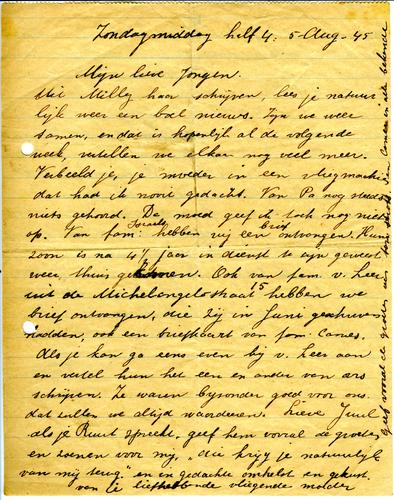 Zondagmiddag half 4. 5-Aug-45
Mijn lieve Jongen.
Uit Milly haar schrijven, lees je natuur-
lijk weer een boel nieuws. Zijn we weer
samen, en dat is hopenlijk al de volgende
week, vertellen we elkaar nog veel meer.
Verbeeld je, je moeder in een vliegmachine
dat had ik nooit gedacht. Van Pa nog steeds
niets gehoord. De moed geef ik toch nog niet
op. Van fam. Israels hebben wij een brief ontvangen. Hun
zoon is na 4½ jaar in dienst te zijn geweest
weer thuis gekomen. Ook van fam. v. Leer
uit de Michelangelostraat 15 hebben we
brief ontvangen, die zij in Juni geschreven
hadden, ook een briefkaart van fam. Cames.
Als je kan ga eens even bij v. Leer aan
en vertel hun het een en ander van ons
schrijven. Ze waren bijzonder goed voor ons
dat zullen we altijd waardeeren. Lieve Juul
als je Ruut spreekt, geef hem vooral de groeten
en zoenen voor mij, "die krijg je natuurlijk
van mij terug" en in gedachte omhelst en gekust
van je liefhebbende vliegende moeder
geef vooral de groeten aan Cames en alle bekende